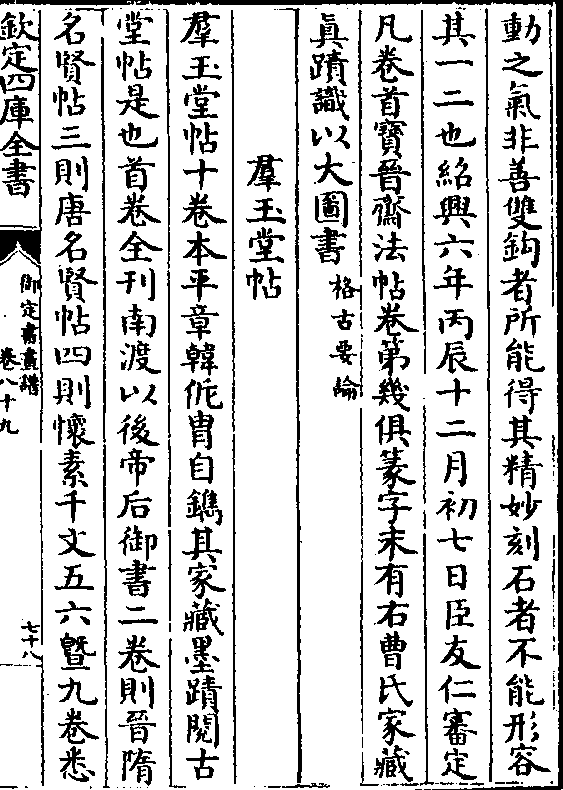 動之氣非善雙鈎者所能得其精妙刻石者不能形容
其一二也紹興六年丙辰十二月初七日臣友仁審定
凡卷首寶晉齋法帖卷第幾俱篆字末有右曹氏家藏
真蹟識以大圖書格古要論
羣玉堂帖
羣玉堂帖十卷本平章韓侂胄自鐫其家藏墨蹟閱古
堂帖是也首卷全刊南渡以後帝后御書二卷則晉隋
名賢帖三則唐名賢帖四則懷素千文五六暨九卷悉
欽定四庫全書
御定書畫譜
卷八十九
七十八